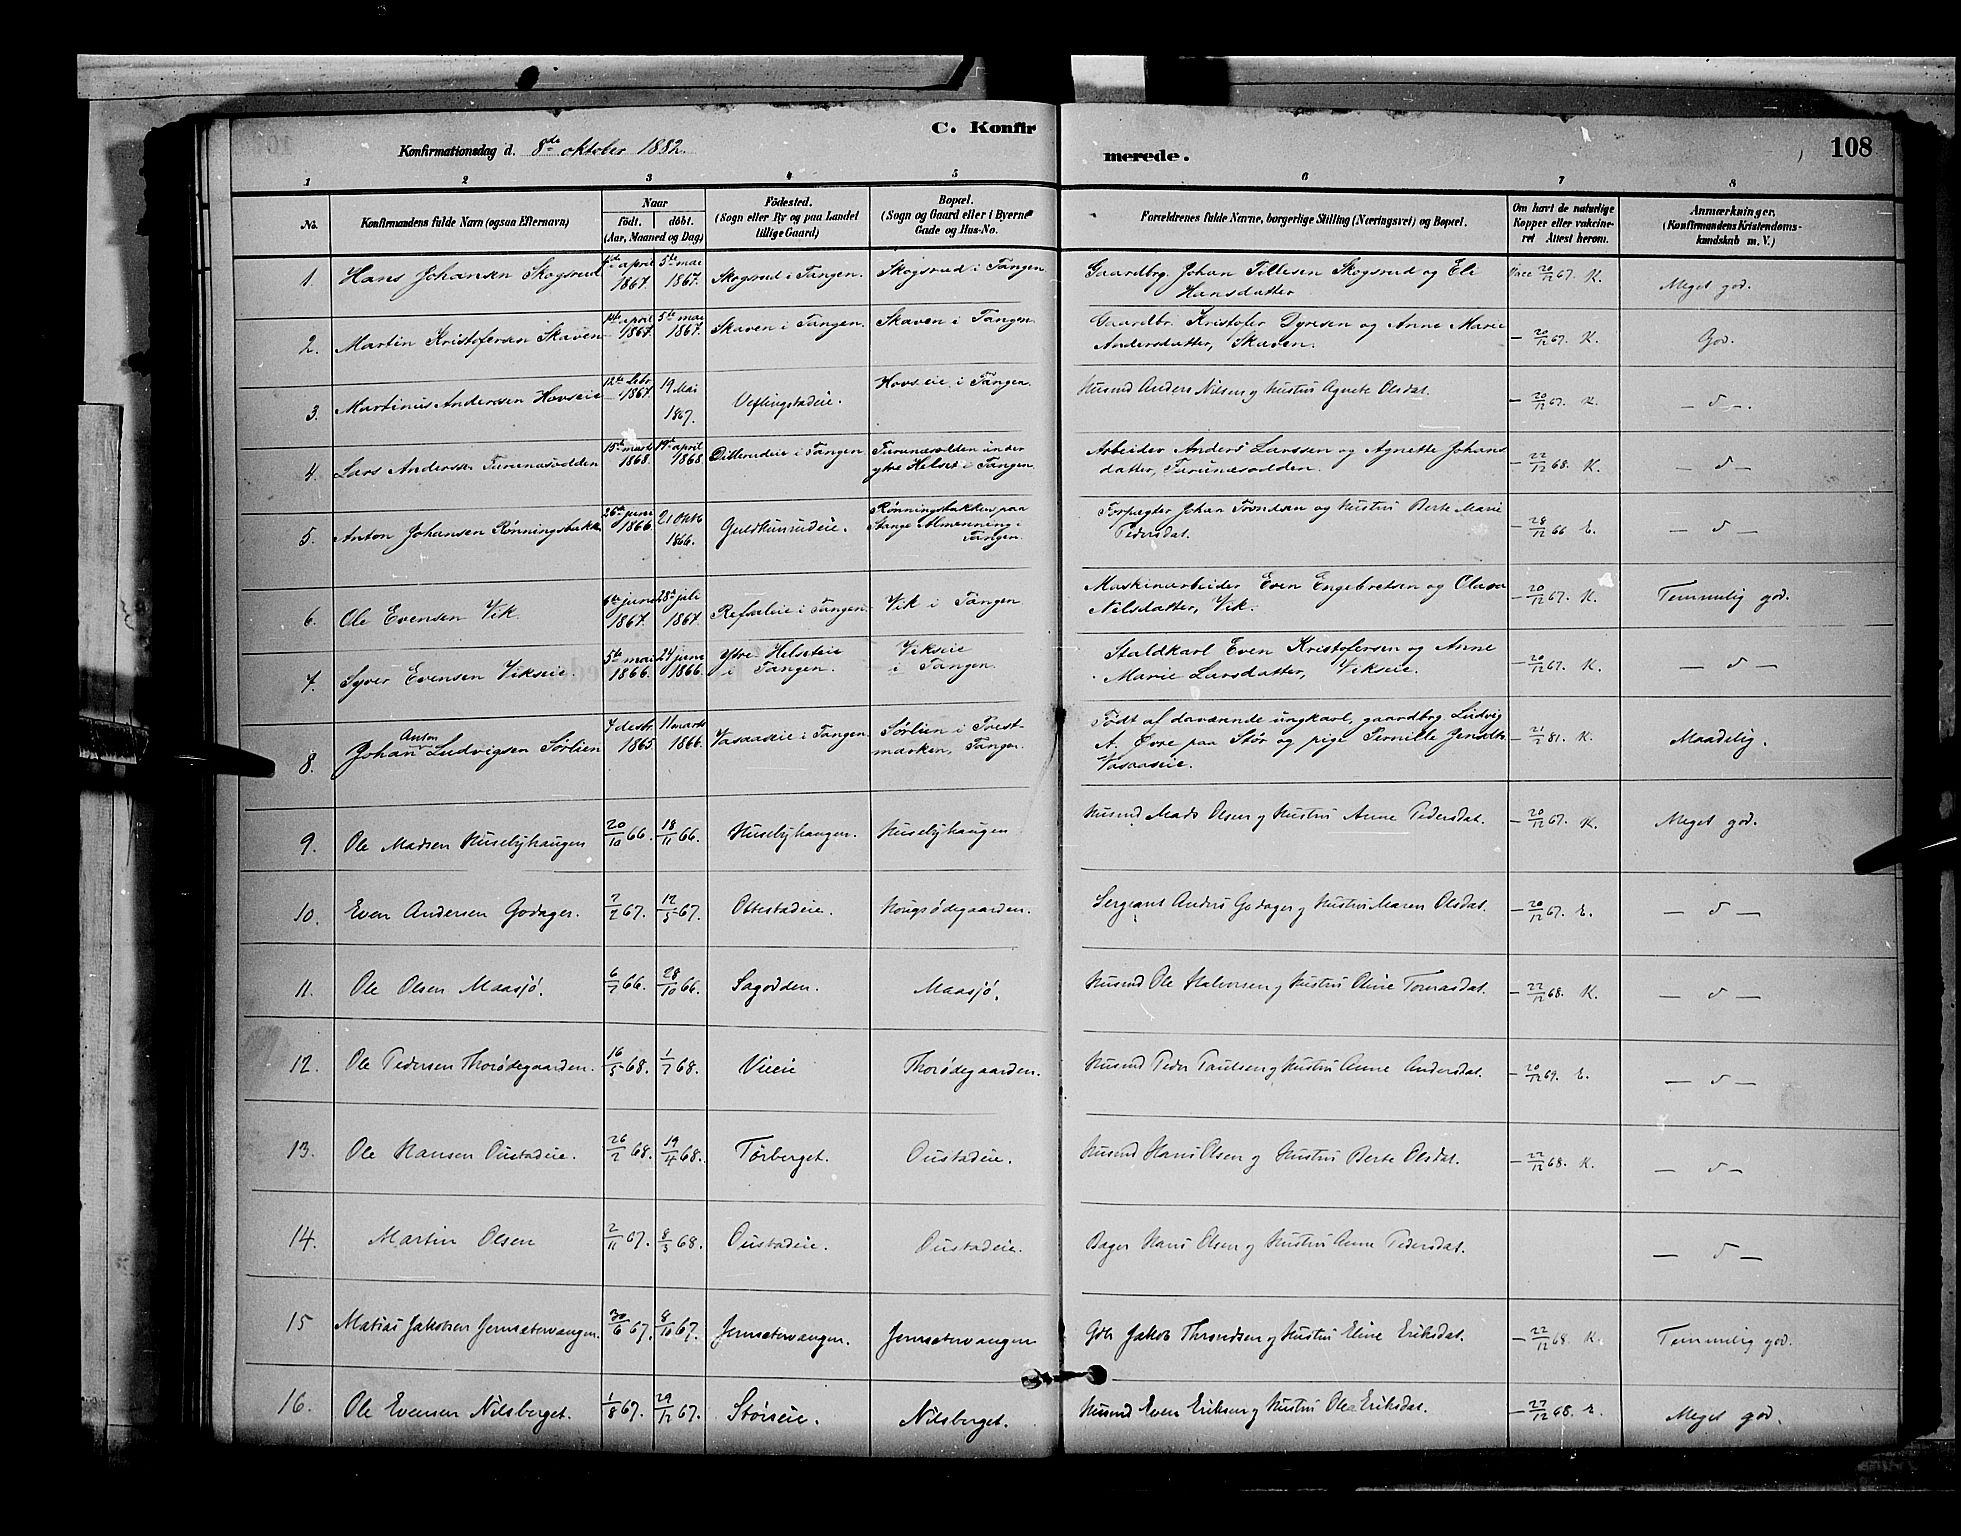 C. Konfirmerede.
108
Konfirmationsdag d. 8de oktober 1882.
1 2 3 4 5 6 7 8
No.
Konfirmandens fulde Navn (ogsaa Efternavn)
Naar
födt. döbt.
(Aar, Maaned og Dag)
Födested.
(Sogn eller By og paa Landet
tillige Gaard)
Bopæl.
(Sogn og Gaard eller i Byerne
Gade og Hus-No.
Forældrenes fulde Navne, borgerlige Stilling (Næringsvei) og Bopæl.
Om havt de naturlige
Kopper eller vakcine-
ret Attest herom.
Anmærkninger.
(Konfirmandens Kristendoms-
kundskab m. V.)
1. Hans Johansen Skogsrud april 1867. 5te mai 1867. Skogsrud i Tangen. Skogsrud i Tangen Gaardbrg. Johan Tillesen Skogsrud og Eli
Hansdatter 20/12 67. K. Meget god.
2. Martin Kristofersen Skaven 14de april 1867. 5te mai 1867. Skaven i Tangen. Skaven i Tangen. Gaardbr. Kristofer Dyresen og Anne Marie
Andersdatter, Skaven. — 20/12 67. K. God.
3. Martinus Andersen Hovseie 12te febr 1867. 19 Mai 1867. Veflingstadeie. Hovseie i Tangen. Husmd Anders Nilsen og Hustru Agnete Olsdat. — 20/12 67. K. — d —.
4. Lars Andersen 15de marts 1868. 19de april 1868 i Tangen under
ytre Helset i Tangen. Arbeider Anders Larssen og Agnette Johans
datter, — 22/12 68. K. — d —
5. Anton Johansen Rønningsbakke 26de juni 1866 21 Oktb 1866. Guldhusudeie. Rønningsbakken paa
Stange Almenning i
Tangen. Forpagter Johan Trondsen og Hustru Berte Marie
Pedersdat. — 28/12 66 E. — d —
6. Ole Evensen Vik. 6te juni 1867. 28de juli 1867. i Tangen Vik i Tangen Maskinarbeider Even Engebretsen og Olava
Nilsdatter, Vik. — 20/12 67. K. Temmelig god.
7. Syver Evensen Vikseie. 5te mai 1866. 24 juni 1866. Ytre Helseteie
i Tangen. Vikseie
i Tangen. Staldkarl Even Kristofersen og Anne
Marie Larsdatter, Vikseie. — 20/12 67. K. — d —
8. Johan Anton Ludvigsen Sørlien 7 desbr. 1865 11 marts 1866. Vasaaseie i Tangen Sørlien i Prest-
marken, Tangen. Født af daværende ungkarl, gaardbrg. Ludvig
A. Øvre paa Stør og pige Pernille Jensdtr.
Vasaaseie. — 21/2 81. K. Maadelig.
9. Ole Madsen Huselyhaugen 20/10 66. 18/11 66. Huselyhaugen. Huselyhaugen Husmd Mads Olsen og Hustru Anne Pedersdat. — 20/12 67. K. Meget god.
10. Even Andersen Godager. 7/2 67. 12/5 67. Ottestadeie. Hougsødegaarden. Sergiant Anders Godager og Hustru Maren Olsdat. — 20/12 67. E. — d —
11. Ole Olsen Maasjø. 6/7 66. 28/10 66. Sagodden. Maasjø. Husmd Ole Halvorsen og Hustru Oline Tomasdat. — 22/12 68. K. — d —
12. Ole Pedersen Thorødegaarden. 16/5 68. 1/7 68. Vieie Thorødegaarden. Husmd Peder Paulsen og Hustru Anne Andersdat. — 20/12 69. E. — d —
13. Ole Hansen Oustadeie. 26/2 68. 19/4 68. Tørberget. Oustadeie. Husmd Hans Olsen og Hustru Berte Olsdat. — 22/12 68. K. — d —
14. Martin Olsen 2/11 67. 8/3 68. Oustadeie. Oustadeie. Bager Hans Olsen og Hustru Anne Pedersdat. — d —
15 Matias Jakobsen Jemsætervangen. 30/6 67. 8/10 67. Jemsætervangen. Jemsætervangen Gbr Jakob Throndsen og Hustru Eline Eriksdat. — 22/12 68. K. Temmelig god.
16. Ole Evensen Nilsberget. 1/8 67. 29/12 67. Størseie. Nilsberget. Husmd Even Eriksen og Hustru Olea Eriksdat. — 27/12 68. E. Meget god.